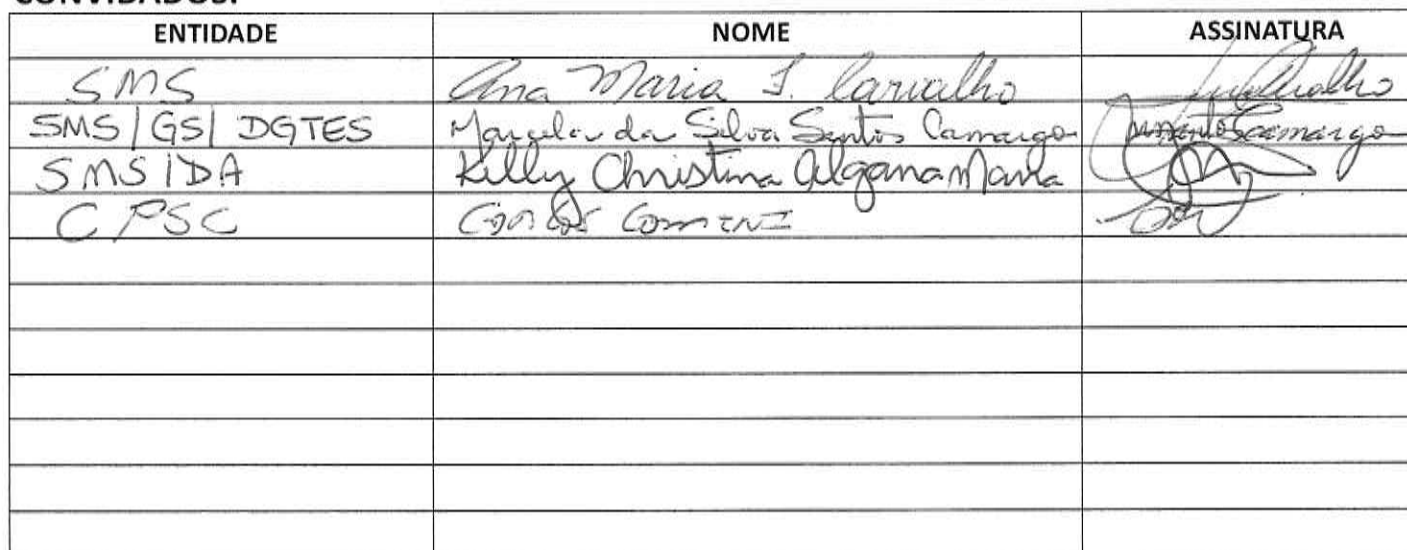 CONVIDADOS:
ENTIDADE NOME ASSINATURA
SMS Ana Maria J. Carvalho
SMS|GS| DGTES Marcela da Silva Santos Camargo
SMS|DA Kelly Christina
CPSC Carlos